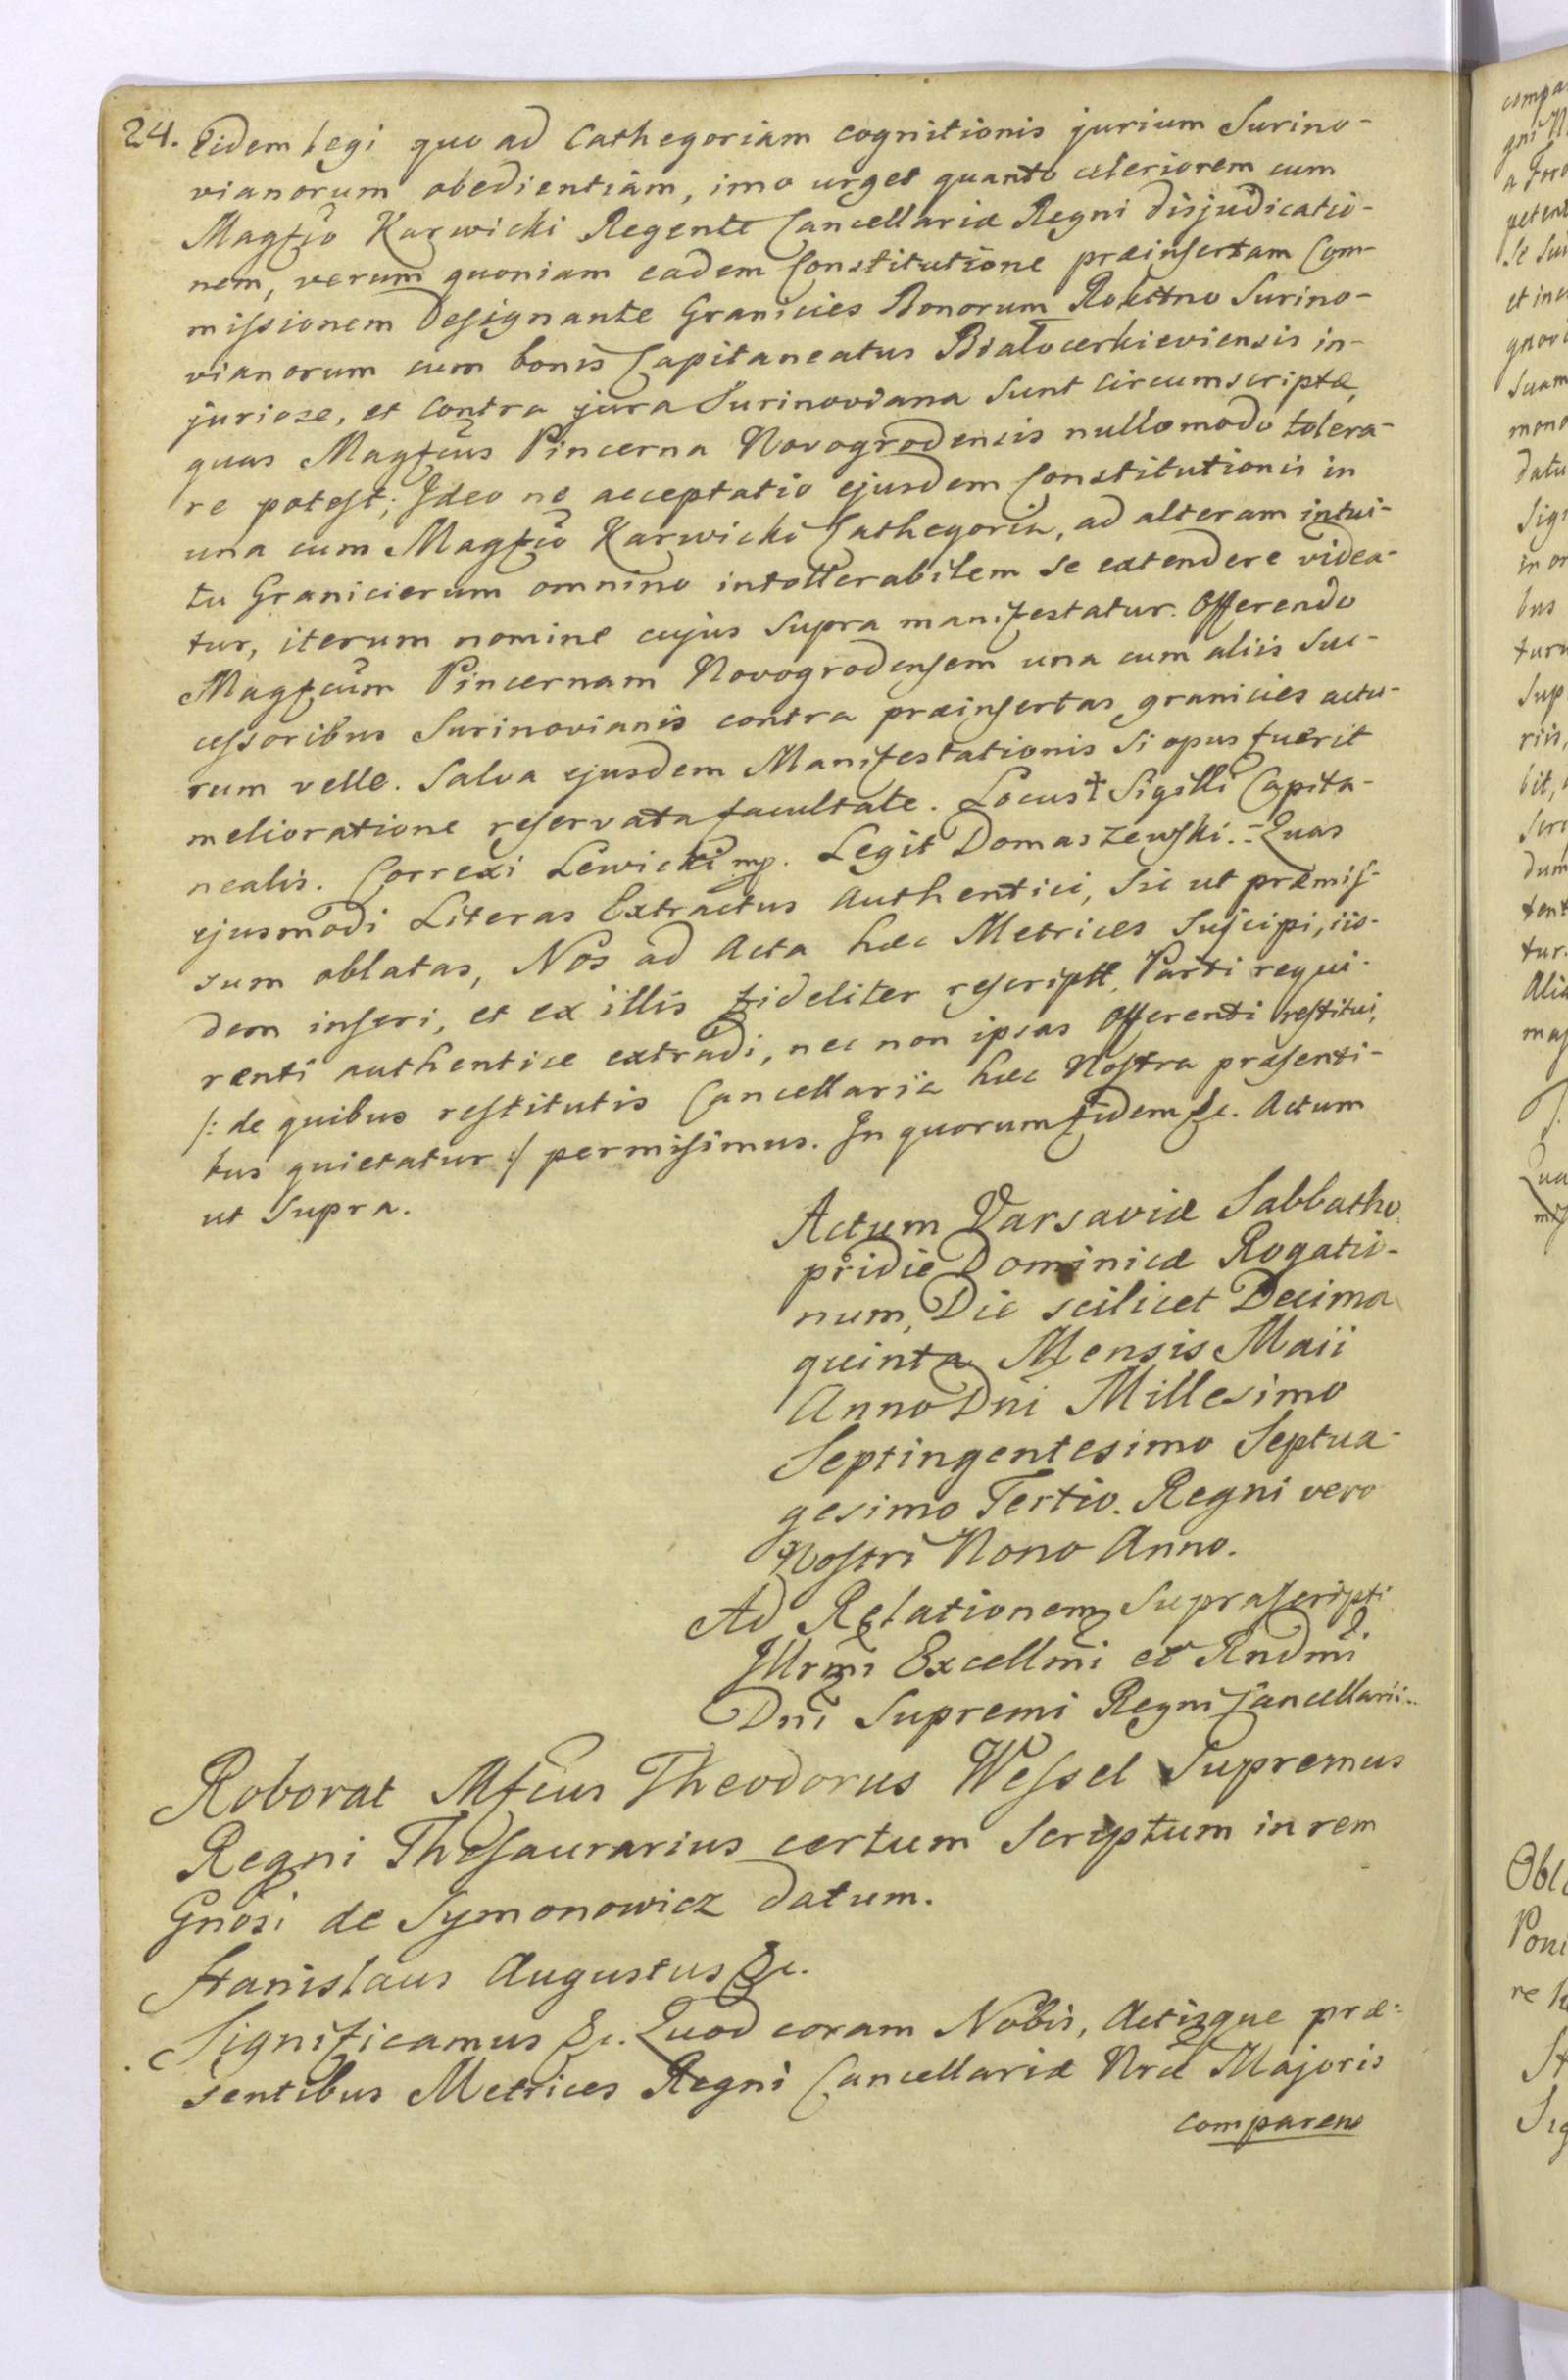 24. Eidem legi quo ad Cathegoriam cognitionis jurium Surino-
vianorum obedientiam, imo urget quanto celeriorem cum
Magfco Karwicki Regente Cancellariæ Regni disjudicatio-
nem, verum quoniam eadem Constitutione præinsertam Com-
missionem designante Granicies Bonorum Rokitno Surino-
vianorum cum bonis Capitaneatus Białocerkieviensis in-
juriose, et contra jura Surinoviana sunt circumscriptæ,
quas Magfcus Pincerna Novogrodensis nullomodo tolera-
re potest; Ideo ne acceptatio ejusdem Constitutionis in
una cum Magfco Karwicki Cathegoria, ad alteram intui-
tu Granicierum omnino intollerabilem se extendere videa-
tur, iterum nomine cujus supra manifestatur. Offerendo
Magfcum Pincernam Novogrodensem una cum aliis suc-
cessoribus Surinovianis contra præinsertas granicies actu-
rum velle. Salva ejusdem Manifestationis si opus fuerit
melioratione reservata facultate. Locus + Sigilli Capita-
nealis. Correxi Lewicki mp. Legit Domaszewski. Quas
ejusmodi Literas Extractus Authentici, sic ut præmis-
sum oblatas, Nos ad Acta hæc Metrices suscipi, iis-
dem inseri, et ex illis fideliter rescriptt. Parti requi-
renti authentice extradi, nec non ipsas offerenti restitui,
/: de quibus restitutis Cancellaria hæc Nostra præsenti-
bus quietatur :/ permisimus. In quorum fidem &c. Actum
ut Supra.
Actum Varsaviæ Sabbatho
pridie Dominicæ Rogatio-
num, Die scilicet Decima
quinta Mensis Maii
Anno Dni Millesimo
Septingentesimo Septua-
gesimo Tertio. Regni vero
Nostri Nono Anno.
Ad Relationem Suprascripti
Illrmi Excellmi et Rndmi
Dni Supremi Regni Cancellarii..
Roborat Mfcus Theodorus Wessel Supremus
Regni Thesaurarius certum Scriptum in rem
Gnosi de Symonowicz datum.
Stanislaus Augustus &c.
Significamus &c. Quod coram Nobis, Actisque præ-
sentibus Metrices Regni Cancellariæ Nræ Majoris
comparens